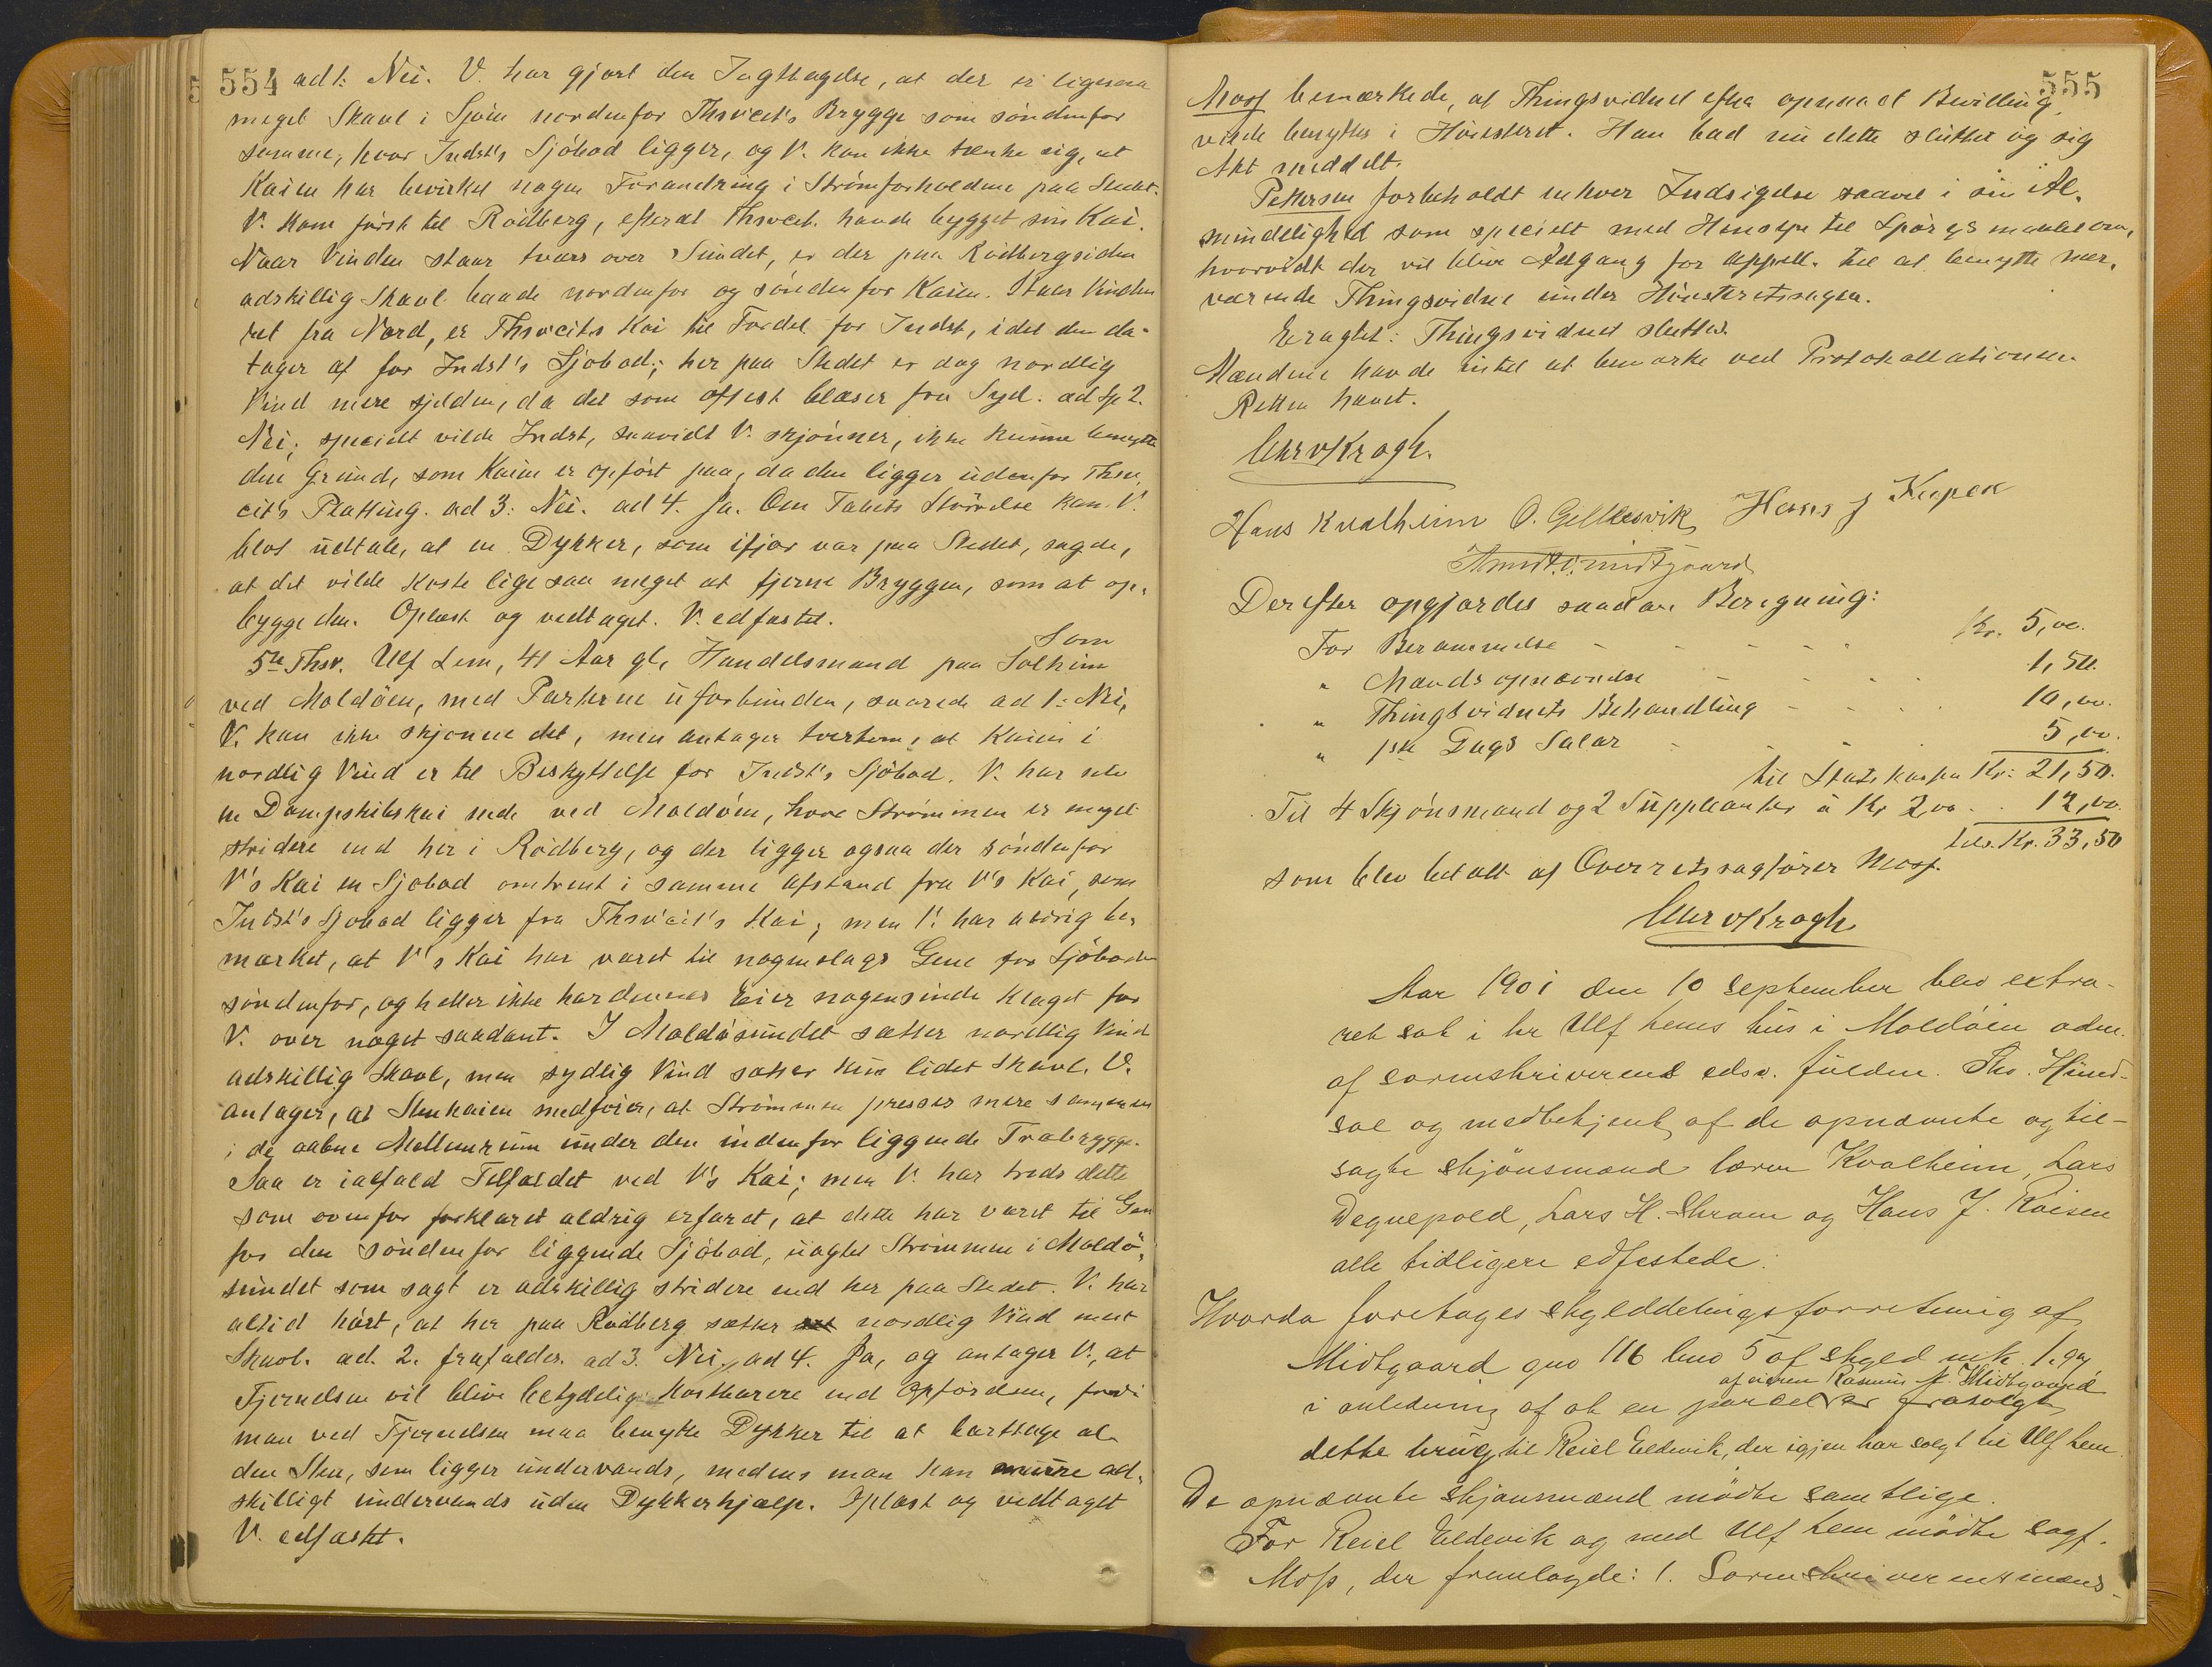 554 ad 1: Nei. V. har gjort den Iagttagelse, at der er ligesaa
meget Skavl i Sjöen nordenfor Thsvcit's Brygge som söndenfor
samme, hvor Indst's Sjöbod ligger, og V. kan ikke tænke sig, at
Kaien har bevirket nogen Forandring i Strömforholdene paa Stedet.
V. kom först til Rödberg, efterat Thsvcit. havde bygget sin Kai.
Naar Vinden staar tværs over Sundet, er der paa Rödbergsiden
adskillig Skavl baade nordenfor og söndenfor Kaien. Staar Vinden
ret fra Nord, er Thsvcits Kai til Fordel for Indst, idet den da
tager af for Indst's Sjöbod; her paa Stedet er dog nordlig
Vind mere sjelden, da det som oftest blæser fra Syd. ad Sp 2.
Nei; specielt vilde Indst, saavidt V. skjönner, ikke kunne benytte
den Grund, som Kaien er opfört paa, da den ligger udenfor Thsv
cit's Platting. ad 3: Nei. ad 4. Ja. Om Tabets Störrelse kan V.
blot udtale, at en Dykker, som ifjor var paa Stedet, sagde,
at det vilde koste lige saa meget at fjerne Bryggen, som at op-
bygge den. Oplæst og vedtaget. V. edfæstet.
Som
5te Thsv. Ulf Lem, 41 Aar gl, Handelsmand paa Solheim
ved Moldöen, med Parterne uforbunden, svarede ad 1: Nei,
V. kan ikke skjönne det, men antager tvertom, at Kaien i
nordlig Vind er til Beskyttelse for Indst's Sjöbod. V. har selv
en Dampskibskai nede ved Moldöen, hvor Strömmen er meget
stridere end her i Rödberg, og der ligger ogsaa der söndenfor
V's Kai en Sjöbod omtrent i samme Afstand fra V's Kai, som
Indst's Sjöbod ligger fra Thsvcit's Kai; men V. har aldrig be-
mærket, at V's Kai har været til nogenslags Gene for Sjöboden
söndenfor, og heller ikke har dennes Eier nogensinde klaget for
V. over noget saadant. I Moldösundet sætter nordlig Vind
adskillig Skavl, men sydlig Vind sætter kun lidet Skavl. V.
antager, at Stenkaien medföier, at Strömmen presses mere sammen
i de aabne Mellemrum under den indenfor liggende Træbrygge.
Saa er ialfald Tilfældet ved V's Kai; men V. har trods dette
som ovenfor forklaret aldrig erfaret, at dette har været til Gene
for den söndenfor liggende Sjöbod, uagtet Strömmen i Moldö-
sundet som sagt er adskillig stridere end her paa Stedet. V. har
altid hört, at her paa Rödberg sætter nordlig Vind mest
Skavl. ad. 2. frafaldes. ad 3. Nei, ad 4. Ja, og antager V., at
Fjernelsen vil blive betydelig kostbarere end Opförelsen, fordi
man ved Fjernelsen maa benytte Dykker til at borttage al
den Sten, som ligger undervands, medens man kan murre ad-
skilligt undervands uden Dykkerhjælp. Oplæst og vedtaget
V. edfæstet.
555
Moss bemærkede, at Thingsvidnet efter opnaaet Bevilling
vilde benyttes i Höiesteret. Han bad nu dette sluttet og sig
Akt meddelt.
Pettersen forbeholdt enhver Indsigelse saavel i sin Al-
mindelighed som specielt med Hensyn til Spörgsmaalet om,
hvorvidt der vil blive Adgang for Appell. til at benytte nær-
værende Thingsvidne under Höiesteretssagen.
Eragtet: Thingsvidnet sluttes.
Mændene havde intet at bemærke ved Protokollationen.
Retten hævet.
Chr v Krogh.
Hans Kvalheim O. Gellesvik Hans J
Midtgaard
Derefter opgjordes saadan Beregning:
For Berammelse - - - - - Kr. 5,00.
" Mændsopnævnelse - - - 1,50.
" Thingsvidnets Behandling - - - 10,00.
" 1ste Dags Salær - 5,00.
til Statskassen Kr: 21,50.
Til 4 Skjönsmænd og 2 Suppleanter à Kr 2,00 . . 12,00.
tils. Kr. 33,50
som blev betalt af Overretssagförer Moss.
Chr v Krogh
Aar 1901 den 10 September blev extra-
ret sat i hr Ulf Lems hus i Moldöen adm.
af sorenskriverens edsv. fuldm. Thv. Hund-
sal og medbetjent af de opnævnte og til-
sagte skjönsmænd Kvalheim, Lars
Degnepold, Lars H. Skram og Hans J. Raisen
alle tidligere edfestede.
Hvorda foretages skylddelingsforretning af
Midtgaard gno 116 bno 5 af skyld mk. 1.
af eieren Rasmus J. Midtgaard
i anledning af at en parcel er frasolgt
dette brug til Reiel Eldevik, der igjen har solgt til Ulf Lem.
De opnævnte skjönsmænd mödte samtlige.
For Reiel Eldevik og med Ulf Lem mödte sagf.
Moss, der fremlagde: 1. Sorenskriverens mænds-